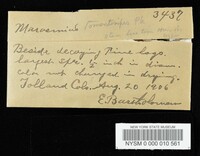 3437
Marasmius
Beside decaying Pine logs.
Largest spec. ½ inch in diam.
Color not changed in drying.
Tolland Colo. Aug. 20 1906
E. Bartholomew
NEW YORK STATE MUSEUM
NYSM 0 000 010 561